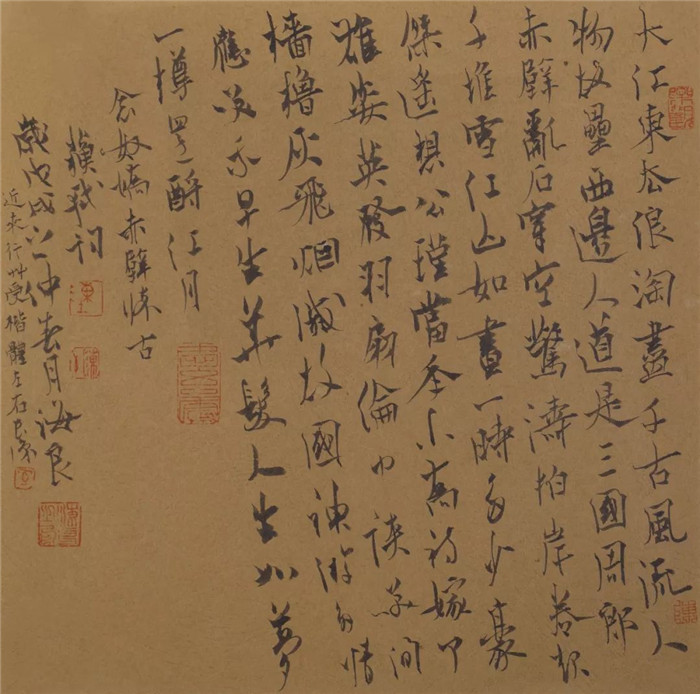 大江東去浪淘盡千古風流人
物故壘西邊人道是三國周郎
赤壁亂石穿空驚濤拍岸卷起
千堆雪江山如畫一時多少豪
傑遙想公瑾當年小喬初嫁了
雄姿英發羽扇綸巾談笑間
檣櫓灰飛烟滅故國神游多情
應笑我早生華髮人生如夢
一樽還酹江月
念奴嬌赤壁懷古
蘇軾詞
歲戊戌之仲春月海良
近来行艸受楷體左右